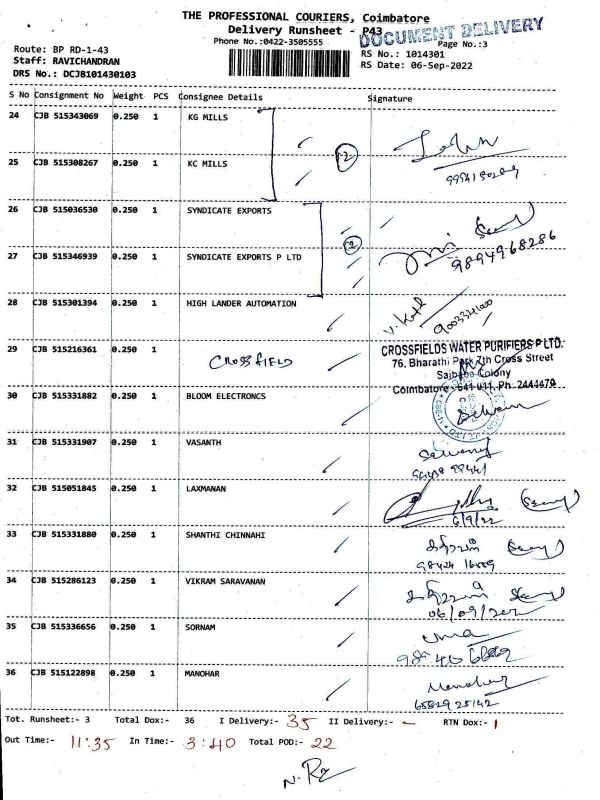 THE PROFESSIONAL COURIERS, Coimbatore
Delivery Runsheet - P43
DOCUMENT DELIVERY
Phone No.:0422-3505555
Page No.:3
Route: BP RD-1-43
RS No.: 1014301
Staff: RAVICHANDRAN
RS Date: 06-Sep-2022
DRS No.: DCJB101430103
S No Consignment No Weight PCS Consignee Details Signature
24 CJB 515343069 0.250 1 KG MILLS
25 CJB 515308267 0.250 1 KC MILLS
26 CJB 515036530 0.250 1 SYNDICATE EXPORTS
27 CJB 515346939 0.250 1 SYNDICATE EXPORTS P LTD
9894968286
28 CJB 515301394 0.250 1 HIGH LANDER AUTOMATION
29 CJB 515216361 0.250 1 CROSSFIELD
CROSSFIELDS WATER PURIFIERS P LTD.
76, Bharathi Park 7th Cross Street
Saibaba Colony
Coimbatore - 641 011. Ph. 2444479
30 CJB 515331882 0.250 1 BLOOM ELECTRONCS
31 CJB 515331907 0.250 1 VASANTH
32 CJB 515051845 0.250 1 LAXMANAN
6/9/22
33 CJB 515331880 0.250 1 SHANTHI CHINNAHI
34 CJB 515286123 0.250 1 VIKRAM SARAVANAN
35 CJB 515336656 0.250 1 SORNAM
Uma
36 CJB 515122898 0.250 1 MANOHAR
Manohar
Tot. Runsheet:- 3 Total Dox:- 36 I Delivery:- 35 II Delivery:- - RTN Dox:- 1
Out Time:- 11:35 In Time:- 3:40 Total POD:- 22